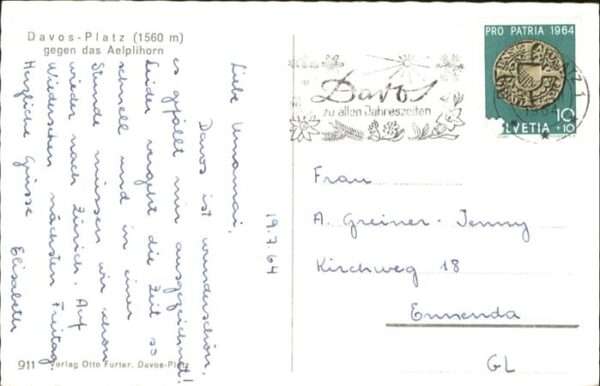 Davos-Platz (1560 m)
gegen das Aelplihorn
19.7.64
Liebe
Davos ist wunderschön,
es gefällt mir ausgezeichnet!
Leider vergeht die Zeit so
schnell und in einer
Stunde müssen wir schon
wieder nach Zürich. Auf
Wiedersehen nächsten Freitag.
Herzliche Grüsse
Elisabeth
911 Verlag Otto Furter, Davos-Platz
Davos
zu allen Jahreszeiten
PRO PATRIA 1964
10
+10
HELVETIA
Frau
A. Greiner-Jenny
Kirchweg 18
Ennenda
GL